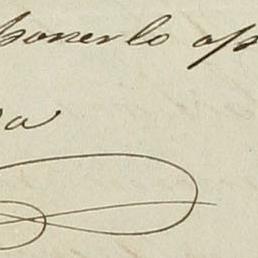 ponerlo op
a